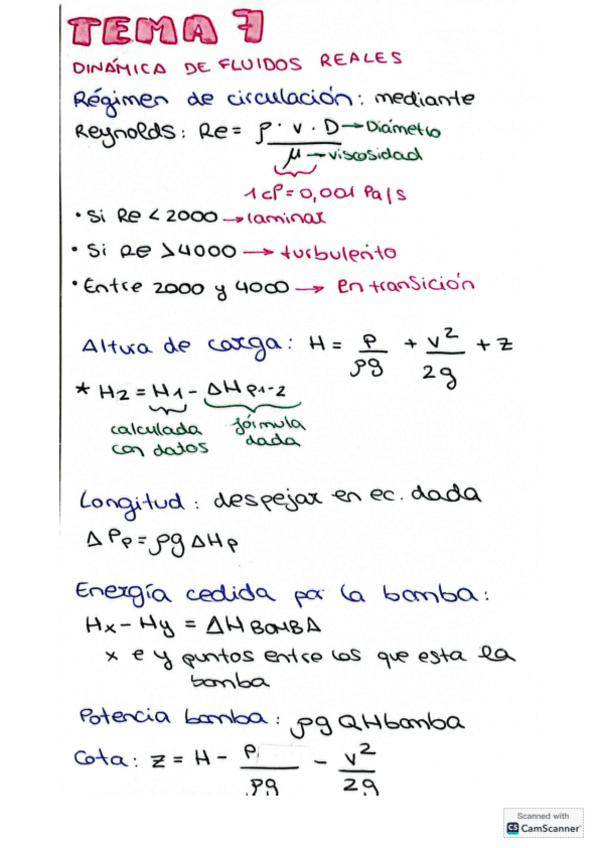 TEMA 7
DINÁMICA DE FLUIDOS REALES
Régimen de circulación: mediante
Reynolds: Re = ρ · v · D → Diámetro
μ → viscosidad
1 cP = 0,001 Pa/s
• Si Re < 2000 → laminar
• Si Re > 4000 → turbulento
• Entre 2000 y 4000 → En transición
Altura de carga: H = P/ρg + v²/2g + z
* H2 = H1 - ΔH P1-2
calculada con datos
fórmula dada
Longitud: despejar en ec. dada
ΔPp = ρg ΔHp
Energía cedida por la bomba:
Hx - Hy = ΔH BOMBA
x e y puntos entre los que esta la
bomba
Potencia bomba: ρg QHbomba
Cota: z = H - P/ρg - v²/2g
Scanned with
CS CamScanner